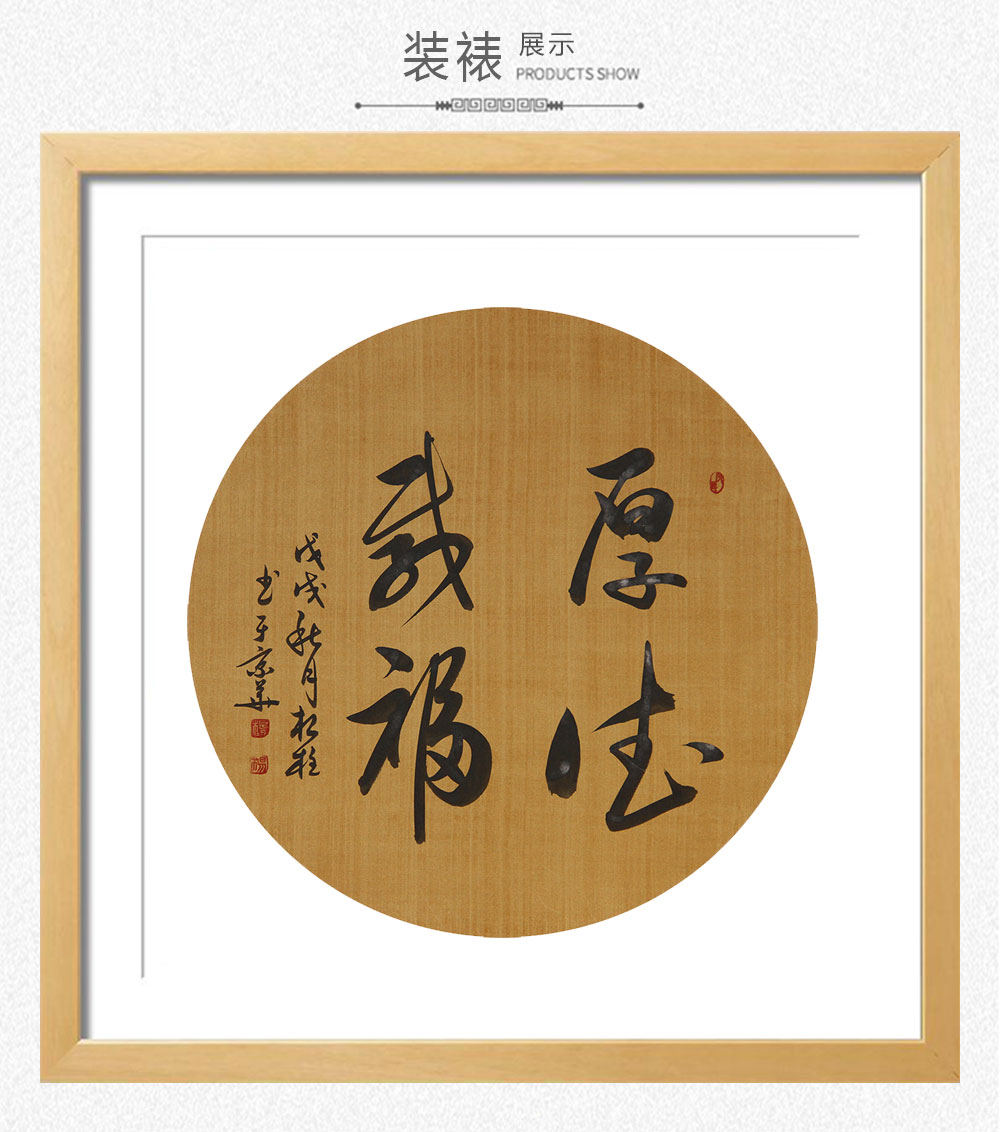 装裱 展示
PRODUCTS SHOW
厚德
载福
戊戌秋月松柱
书于京华